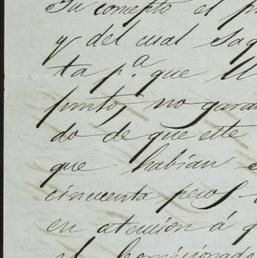 Su concepto el p
y del cual saq
ta p.ª que U
punto, no gara
do de que este
que habian e
cincuenta pesos.
en atencion á q
el comisionado